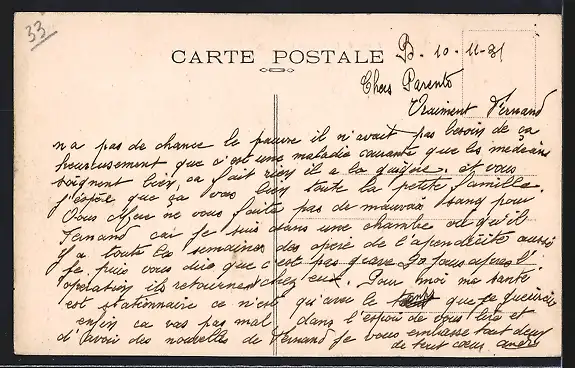 33
CARTE POSTALE
B. 10-11-31
Chers Parents
Vraiment Fernand
n'a pas de chance le pauvre il n'avait pas besoin de ça
heureusement que c'est une maladie courante que les médecins
soignent bien, ça fait rien il a la guigne. et vous
j'espère que ça vas bien toute la petite famille.
Vous ne vous faite pas de mauvais sang pour
Fernand car je suis dans une chambre ou qu'il
y a toute les semaines des opéré de l'apendicite aussi
je puis vous dire que c'est pas grave 20 jous apres l'
opération ils retournes chez eux. Pour moi ma santé
est stationnaire ce n'est qu'avec le temps que je guérirais
enfin ca vas pas mal. dans l'espoir de vous lire et
d'avoir des nouvelles de Fernand je vous embrasse tout deux
de tout cœur